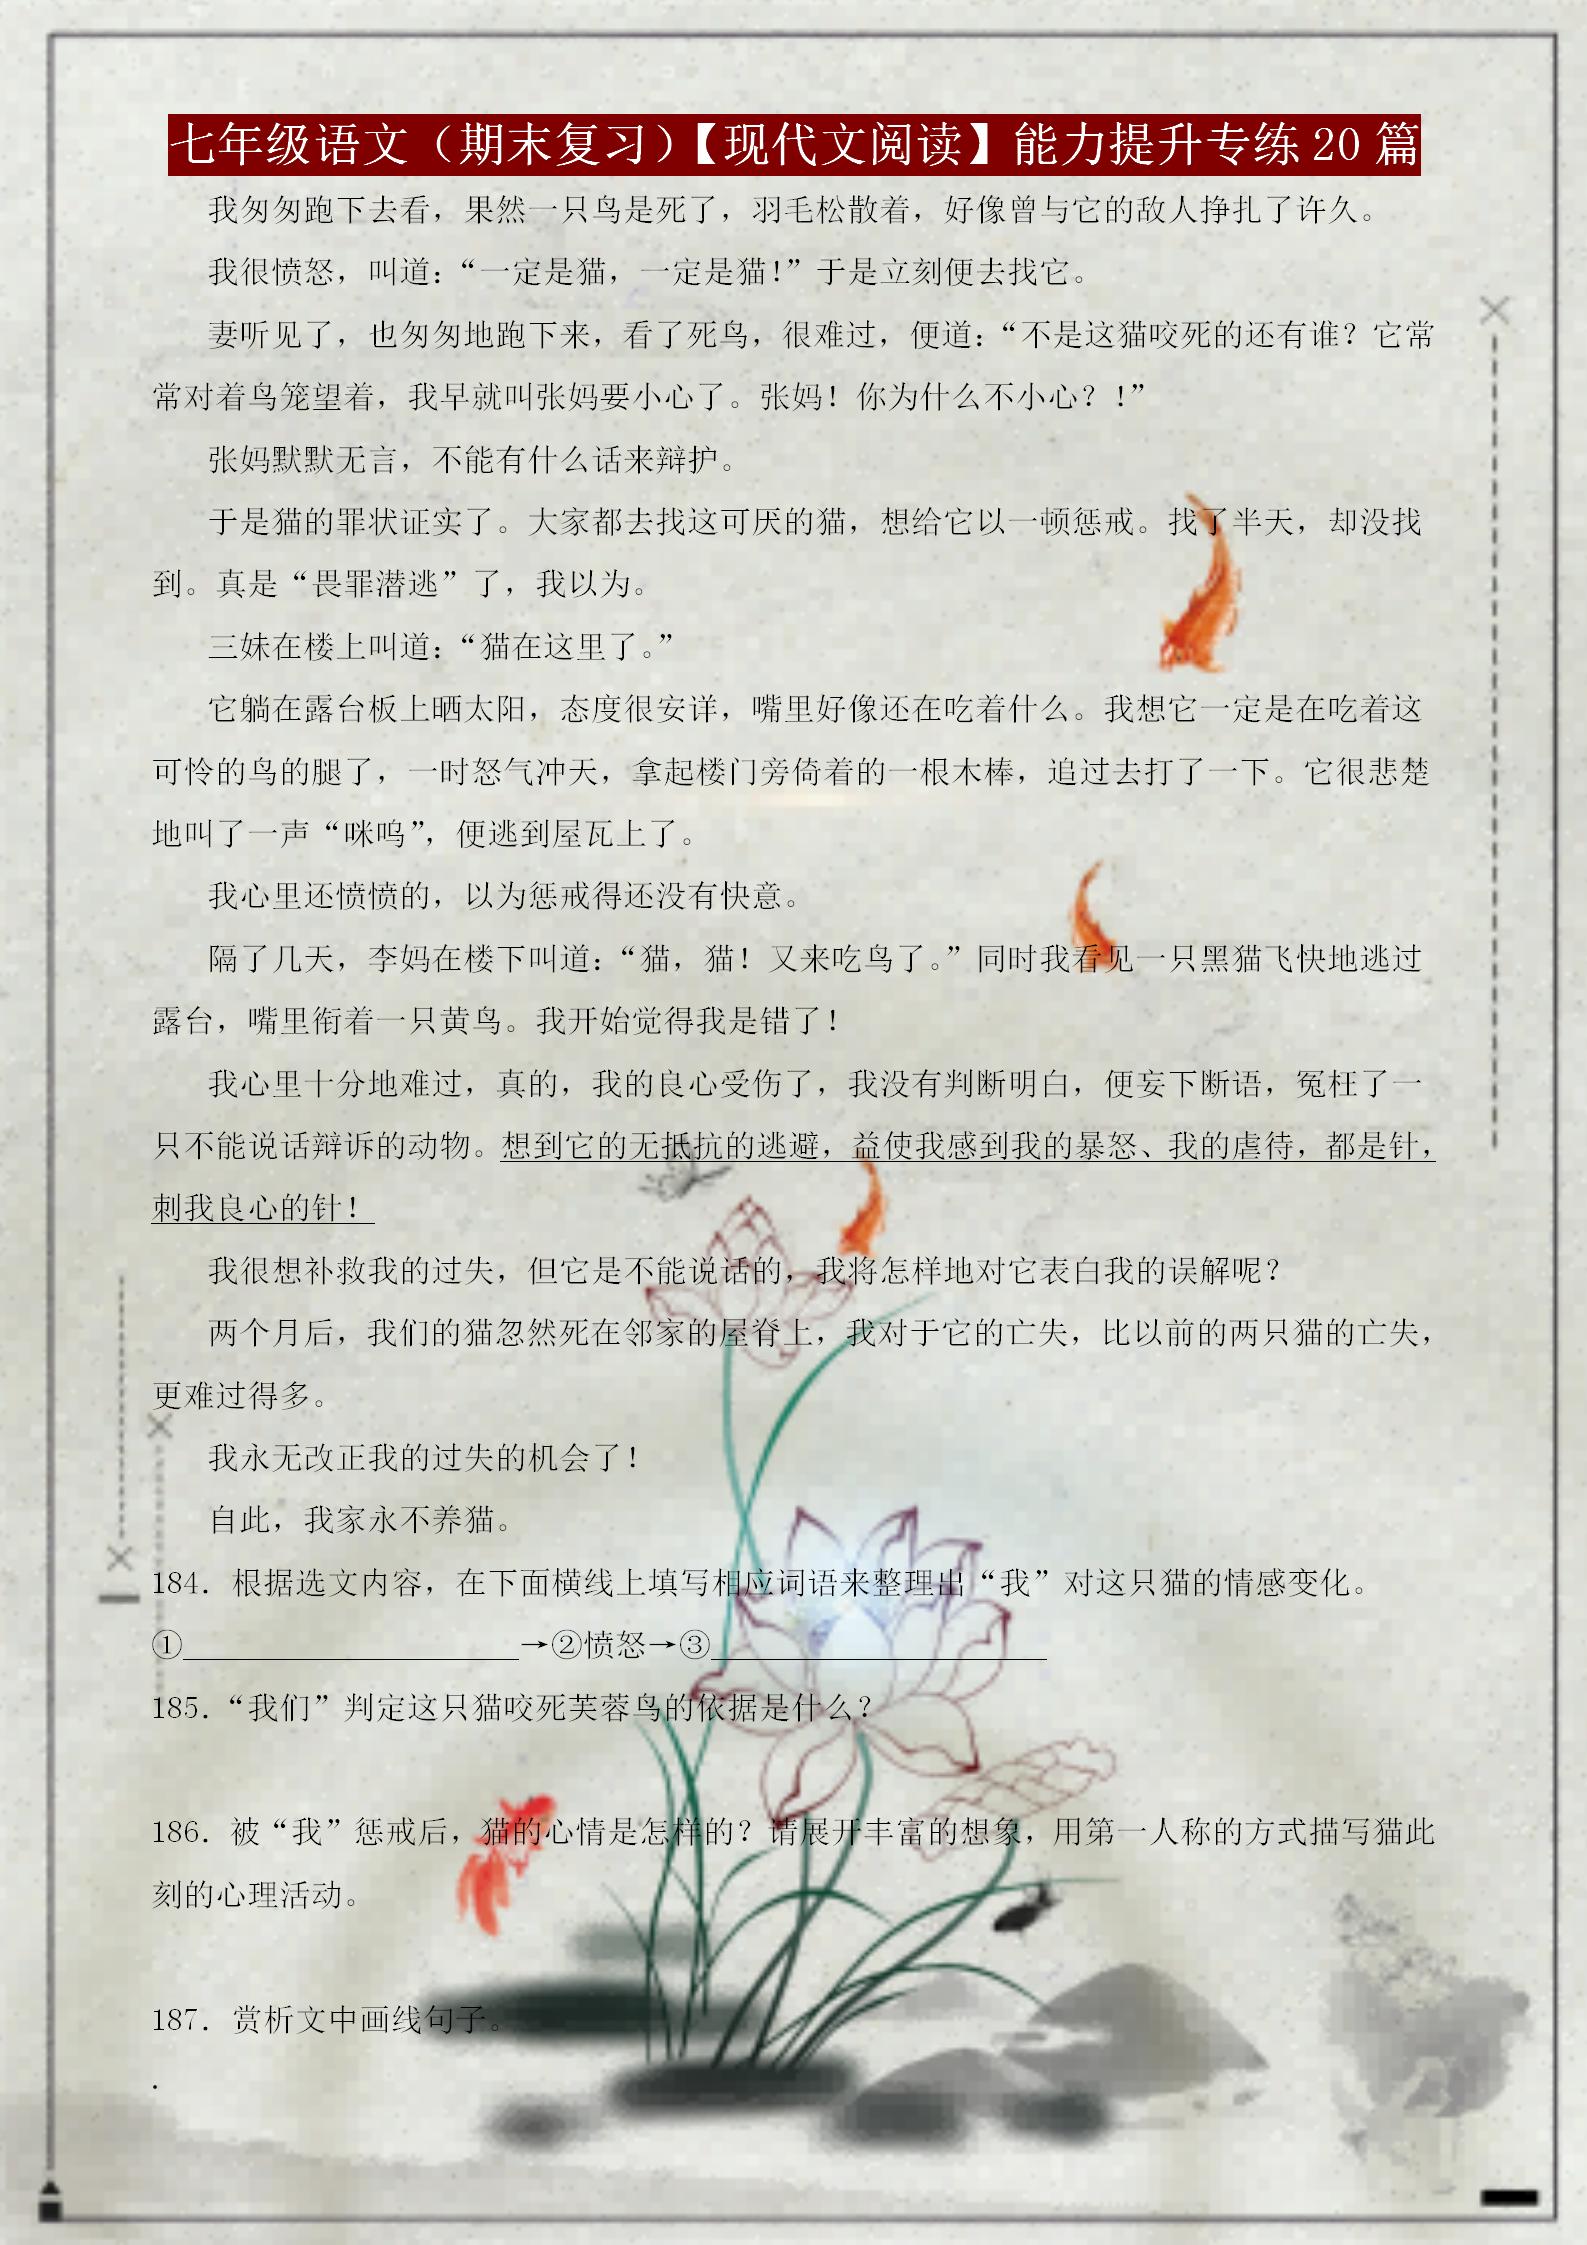 七年级语文（期末复习）【现代文阅读】能力提升专练20篇
我匆匆跑下去看，果然一只鸟是死了，羽毛松散着，好像曾与它的敌人挣扎了许久。
我很愤怒，叫道：“一定是猫，一定是猫！”于是立刻便去找它。
妻听见了，也匆匆地跑下来，看了死鸟，很难过，便道：“不是这猫咬死的还有谁？它常
常对着鸟笼望着，我早就叫张妈要小心了。张妈！你为什么不小心？！”
张妈默默无言，不能有什么话来辩护。
于是猫的罪状证实了。大家都去找这可厌的猫，想给它以一顿惩戒。找了半天，却没找
到。真是“畏罪潜逃”了，我以为。
三妹在楼上叫道：“猫在这里了。”
它躺在露台板上晒太阳，态度很安详，嘴里好像还在吃着什么。我想它一定是在吃着这
可怜的鸟的腿了，一时怒气冲天，拿起楼门旁倚着的一根木棒，追过去打了一下。它很悲楚
地叫了一声“咪呜”，便逃到屋瓦上了。
我心里还愤愤的，以为惩戒得还没有快意。
隔了几天，李妈在楼下叫道：“猫，猫！又来吃鸟了。”同时我看见一只黑猫飞快地逃过
露台，嘴里衔着一只黄鸟。我开始觉得我是错了！
我心里十分地难过，真的，我的良心受伤了，我没有判断明白，便妄下断语，冤枉了一
只不能说话辩诉的动物。想到它的无抵抗的逃避，益使我感到我的暴怒、我的虐待，都是针，
刺我良心的针！
我很想补救我的过失，但它是不能说话的，我将怎样地对它表白我的误解呢？
两个月后，我们的猫忽然死在邻家的屋脊上，我对于它的亡失，比以前的两只猫的亡失，
更难过得多。
我永无改正我的过失的机会了！
自此，我家永不养猫。
184．根据选文内容，在下面横线上填写相应词语来整理出“我”对这只猫的情感变化。
①____________________→②愤怒→③____________________
185．“我们”判定这只猫咬死芙蓉鸟的依据是什么？
186．被“我”惩戒后，猫的心情是怎样的？请展开丰富的想象，用第一人称的方式描写猫此
刻的心理活动。
187．赏析文中画线句子。
.